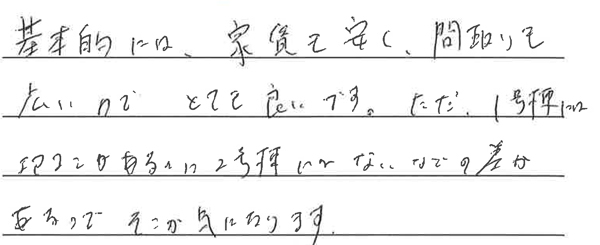 基本的には、家賃も安く、間取りも
広いので とても良いです。ただ、1号棟には
があるのに2号棟にはないなどの差が
あるので そこが気になります.